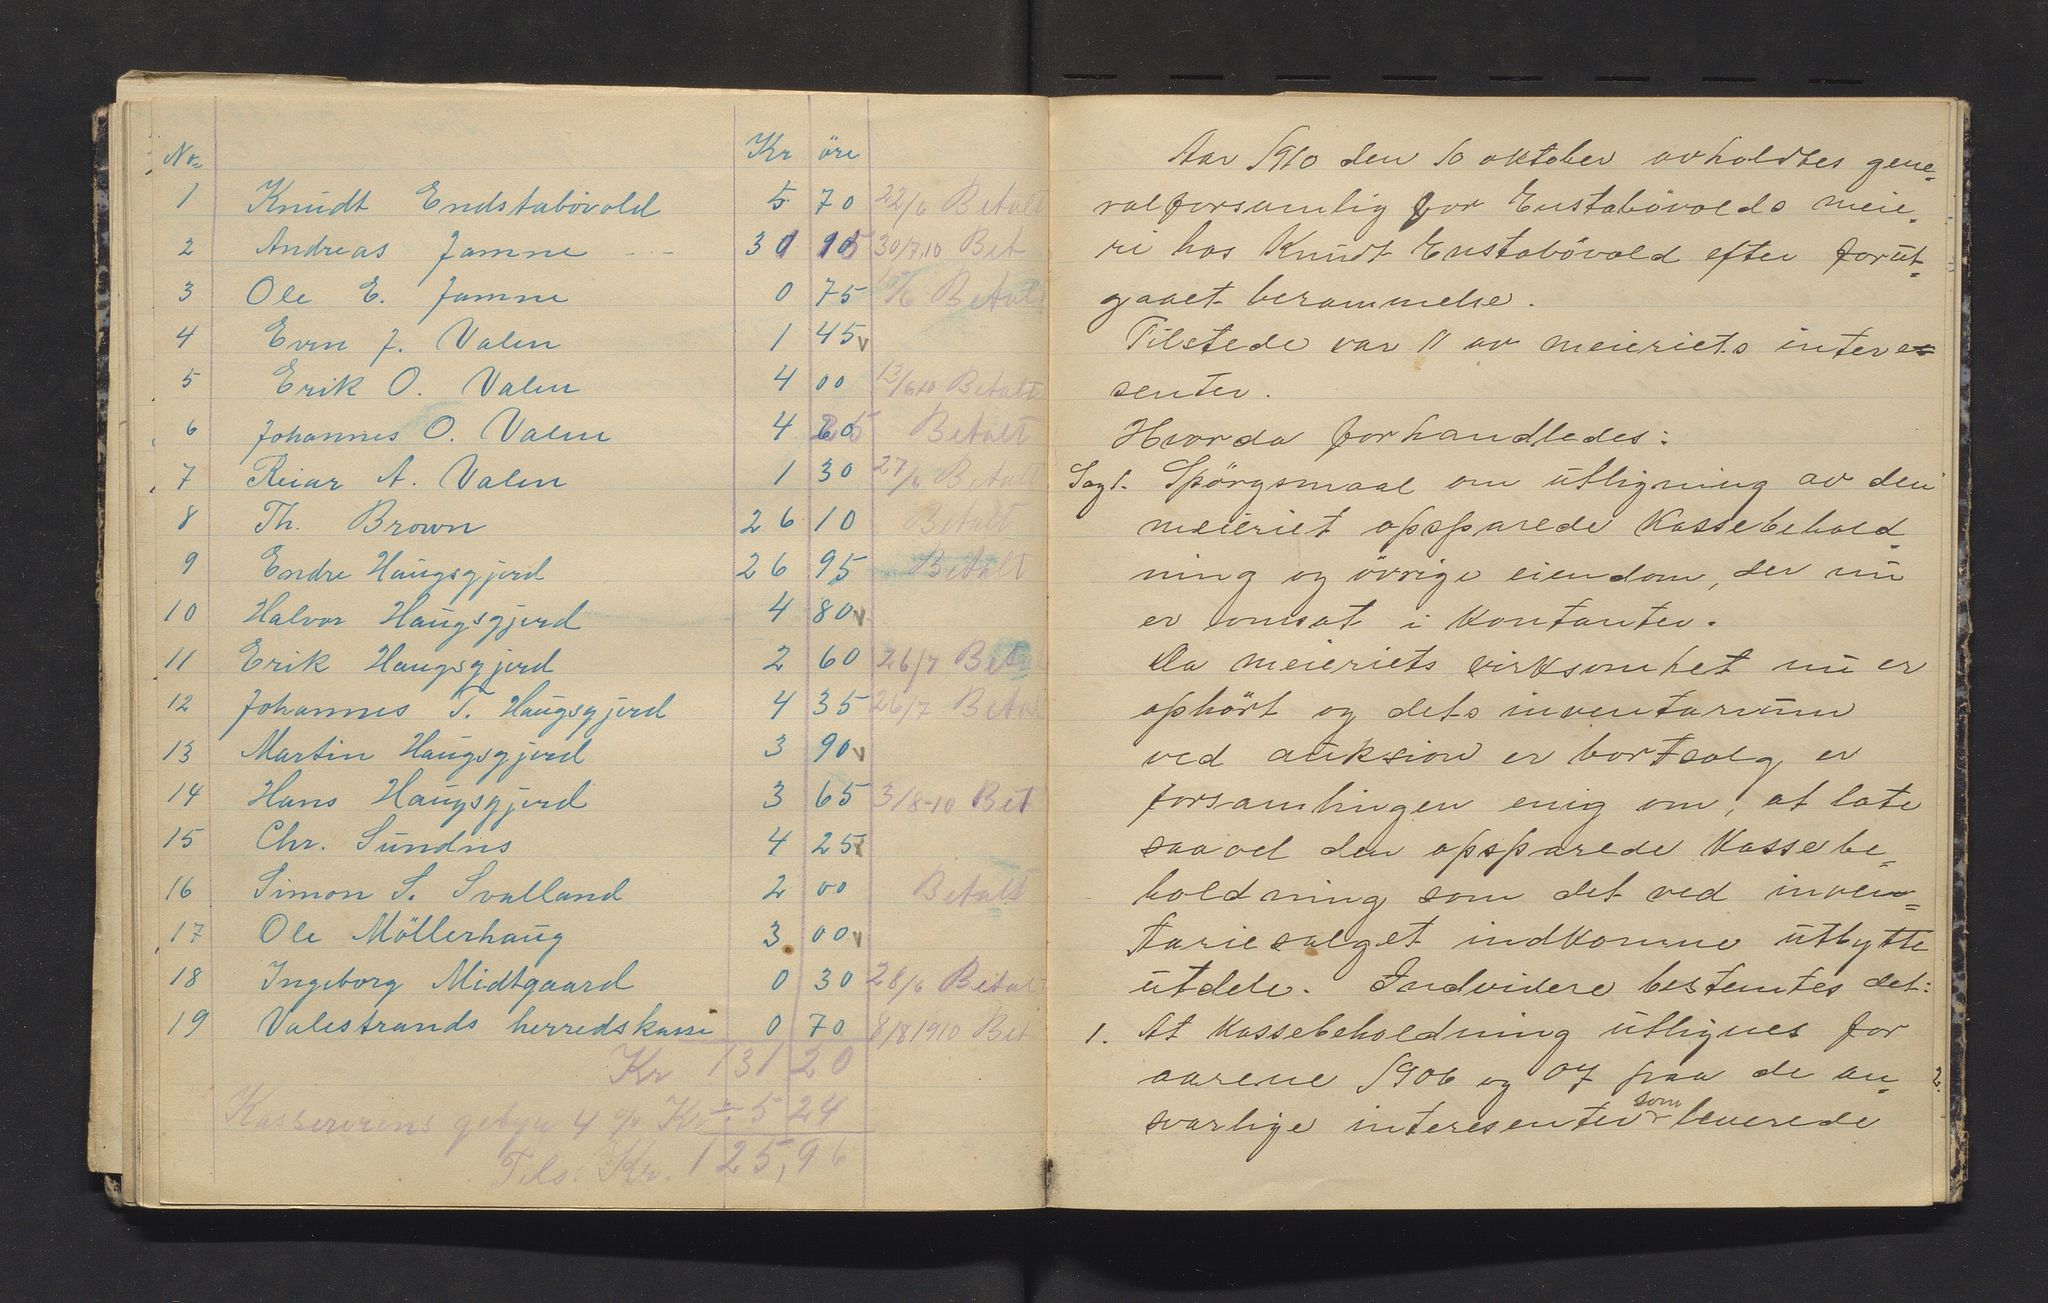 No Kr öre
1 Knudt Endstabövold 5 70 22/6 Betalt
2 Andreas Jamne 30/7.10 Bet
3 Ole E. Jamne 0 75 Betalt
4 Even J. Valen 1 45 v
5 Erik O. Valen 4 00 13/6.10 Betalt
6 Johannes O. Valen 4 Betalt
7 Reiar A. Valen 1 30 27/6 Betalt
8 Th. Brown 26 10 Betalt
9 Endre Haugsgjerd 26 95 Betalt
10 Halvor Haugsgjerd 4 80 v
11 Erik Haugsgjerd 2 60 26/7 Betalt
12 Johannes T. Haugsgjerd 4 35 26/7 Betal
13 Martin Haugsgjerd 3 90 v
14 Hans Haugsgjerd 3 65 3/8-10 Bet
15 Chr. Sundnes 4 25 v
16 Simon S. Svalland 2 00 Betalt
17 Ole Möllerhaug 3 00 v
18 Ingeborg Midtgaard 0 30 28/6 Betalt
19 Valestrands herredskasse 0 70 8/8 1910 Bet
Kr 131 20
Kassererens gebyr 4 % Kr ÷ 5 24
Tils. Kr. 125,96
Aar 1910 den 10 oktober avholdtes gene=
ralforsamlig for Enstabövolds meie=
ri hos Knudt Enstabövold efter forut=
gaaet berammelse.
Tilstede var 11 av meieriets interes
senter.
Hvor da forhandledes:
Sag 1. Spörgsmaal om utligning av den
meieriet opsparede kassebehold=
ning og övrige eiendom, der nu
er omsat i kontanter.
Da meieriets virksomhet nu er
ophört og dets inventarium
ved auksion er bortsolg er
forsamlingen enig om, at late
saavel den opsparede kassebe=
holdning som det ved inven=
tariesalget indkomne utbytte
utdele. Endvidere bestemtes det:
1. At kassebeholdning utlignes for
aarene 1906 og 07 paa de an= 2.
svarlige interesenter som leverede